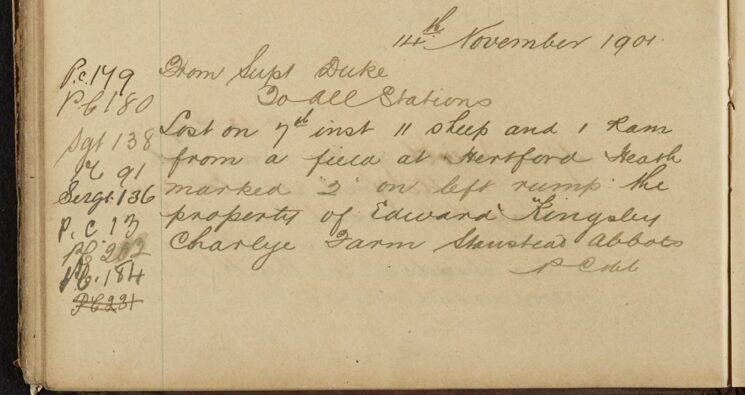 14th November 1901
From Supt Duke
To All Stations
Lost on 7th inst 11 sheep and 1 Ram
from a field at Hertford Heath
marked "2" on left rump the
property of Edward Kingsley
Farm Stanstead Abbots
P.C. 179
PC 180
Sgt 138
91
Sergt. 136
P.C. 13
PC. 202
P.C. 184
PC 231